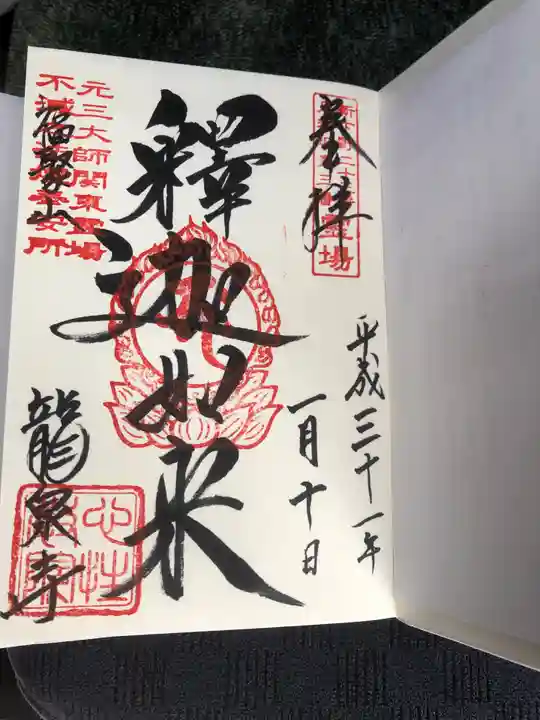 奉拝
平成三十一年
一月十日
釋迦如来
元三大師関東霊場
福聚山
龍泉寺